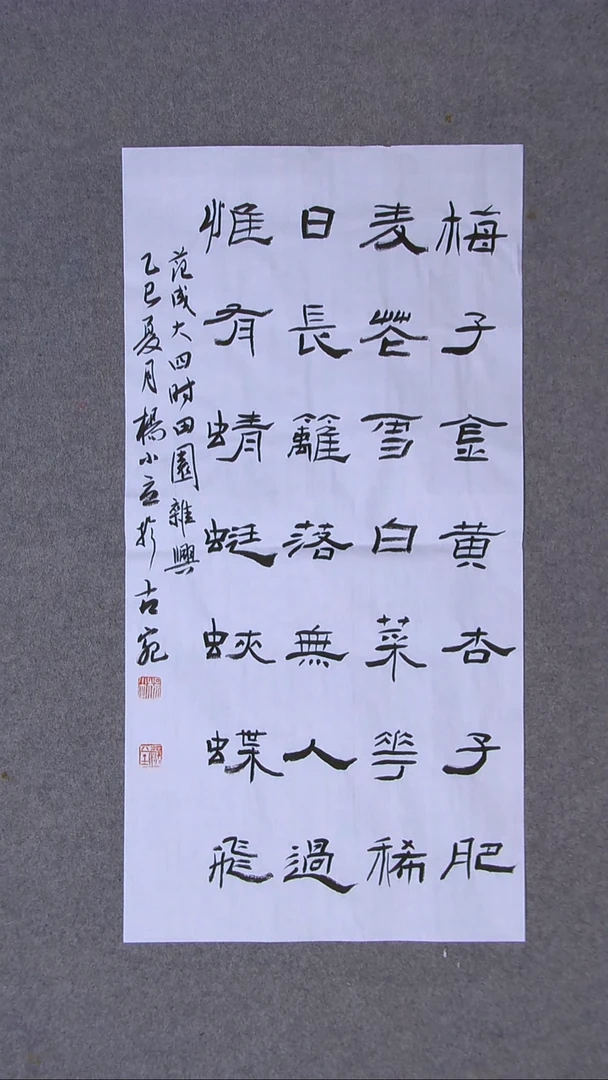 梅子金黄杏子肥
麦花雪白菜花稀
日長籬落無人過
惟有蜻蜓蛺蝶飛
范成大四时田園雜興
乙巳夏月楊小立於古宛